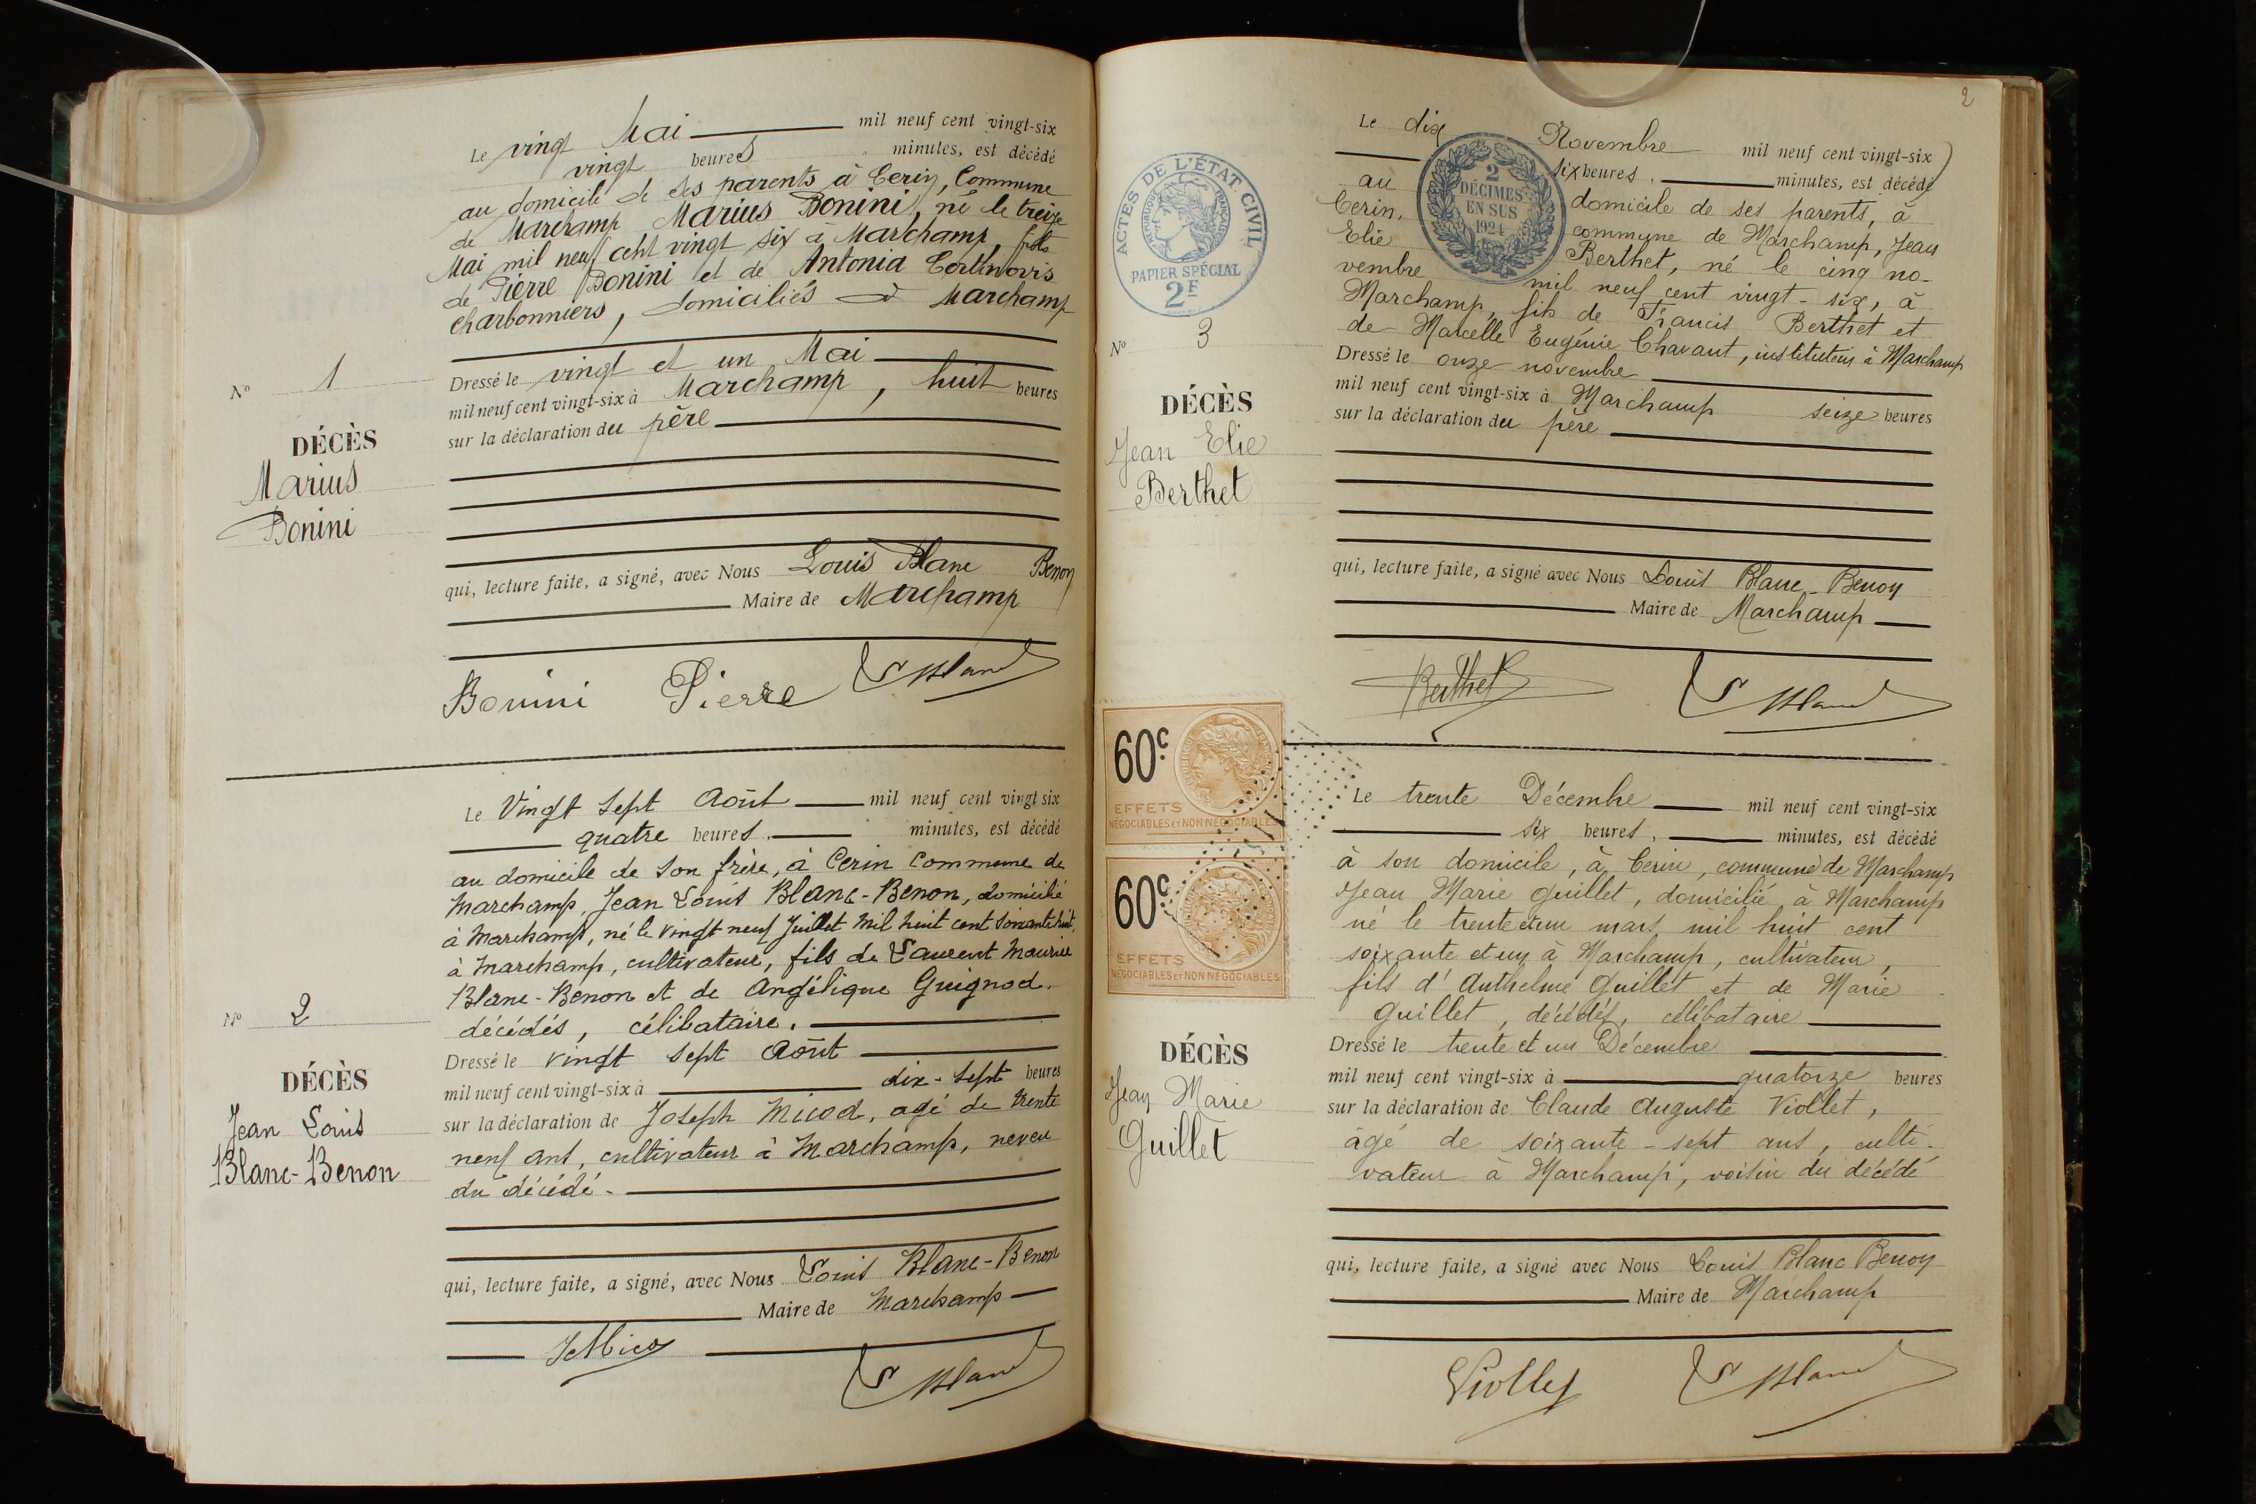 Le vingt Mai mil neuf cent vingt-six
vingt heures minutes, est décédé
au domicile de ses parents à Cerin, Commune
de Marchamp Marius Bonini, né le treize
Mai mil neuf cent vingt six à Marchamp, fils
de Pierre Bonini et de Antonia
charbonniers, domiciliés à Marchamp
Nº 1
DÉCÈS
Marius
Bonini
Dressé le vingt et un Mai
mil neuf cent vingt-six à Marchamp, huit heures
sur la déclaration du père
qui, lecture faite, a signé, avec Nous Louis Blanc Benon
Maire de Marchamp
Bonini Pierre L Blanc
Le Vingt Sept Août mil neuf cent vingt six
quatre heures. minutes, est décédé
au domicile de son frère, à Cerin Commune de
Marchamp, Jean Louis Blanc-Benon, domicilié
à Marchamp, né le vingt neuf Juillet mil huit cent soixante huit,
à Marchamp, cultivateur, fils de Laurent Maurice
Blanc-Benon et de Angélique Guignod.
décédés, célibataire.
Nº 2
DÉCÈS
Jean Louis
Blanc-Benon
Dressé le vingt sept Août
mil neuf cent vingt-six à dix-sept heures
sur la déclaration de Joseph Micod, agé de trente
neuf ans, cultivateur à Marchamp, neveu
du décédé.
qui, lecture faite, a signé, avec Nous Louis Blanc-Benon
Maire de Marchamp
L Blanc
2
ACTES DE L'ÉTAT CIVIL
RÉPUBLIQUE FRANÇAISE
PAPIER SPÉCIAL
2F
2
DÉCIMES
EN SUS
1924
Le dix Novembre mil neuf cent vingt-six
six heures. minutes, est décédé
au domicile de ses parents, à
Cerin, commune de Marchamp, Jean
Elie Berthet, né le cinq no-
vembre mil neuf cent vingt-six, à
Marchamp, fils de Francis Berthet et
de Marcelle Eugénie Chavant, instituteurs à Marchamp
Nº 3
DÉCÈS
Jean Elie
Berthet
Dressé le onze novembre
mil neuf cent vingt-six à Marchamp seize heures
sur la déclaration du père
qui, lecture faite, a signé avec Nous Louis Blanc-Benon
Maire de Marchamp
Berthet L Blanc
60c.
EFFETS
NÉGOCIABLES ET NON NÉGOCIABLES
60c.
EFFETS
NÉGOCIABLES ET NON NÉGOCIABLES
Le trente Décembre mil neuf cent vingt-six
six heures, minutes, est décédé
à son domicile, à Cerin, commune de Marchamp
Jean Marie Guillet, domicilié à Marchamp
né le trente et un mars mil huit cent
soixante et un à Marchamp, cultivateur,
fils d'Anthelme Guillet et de Marie
Guillet, décédés, célibataire
DÉCÈS
Jean Marie
Guillet
Dressé le trente et un Décembre
mil neuf cent vingt-six à quatorze heures
sur la déclaration de Claude Auguste Viollet,
âgé de soixante-sept ans, culti-
vateur à Marchamp, voisin du décédé
qui, lecture faite, a signé avec Nous Louis Blanc Benon
Maire de Marchamp
Viollet L Blanc